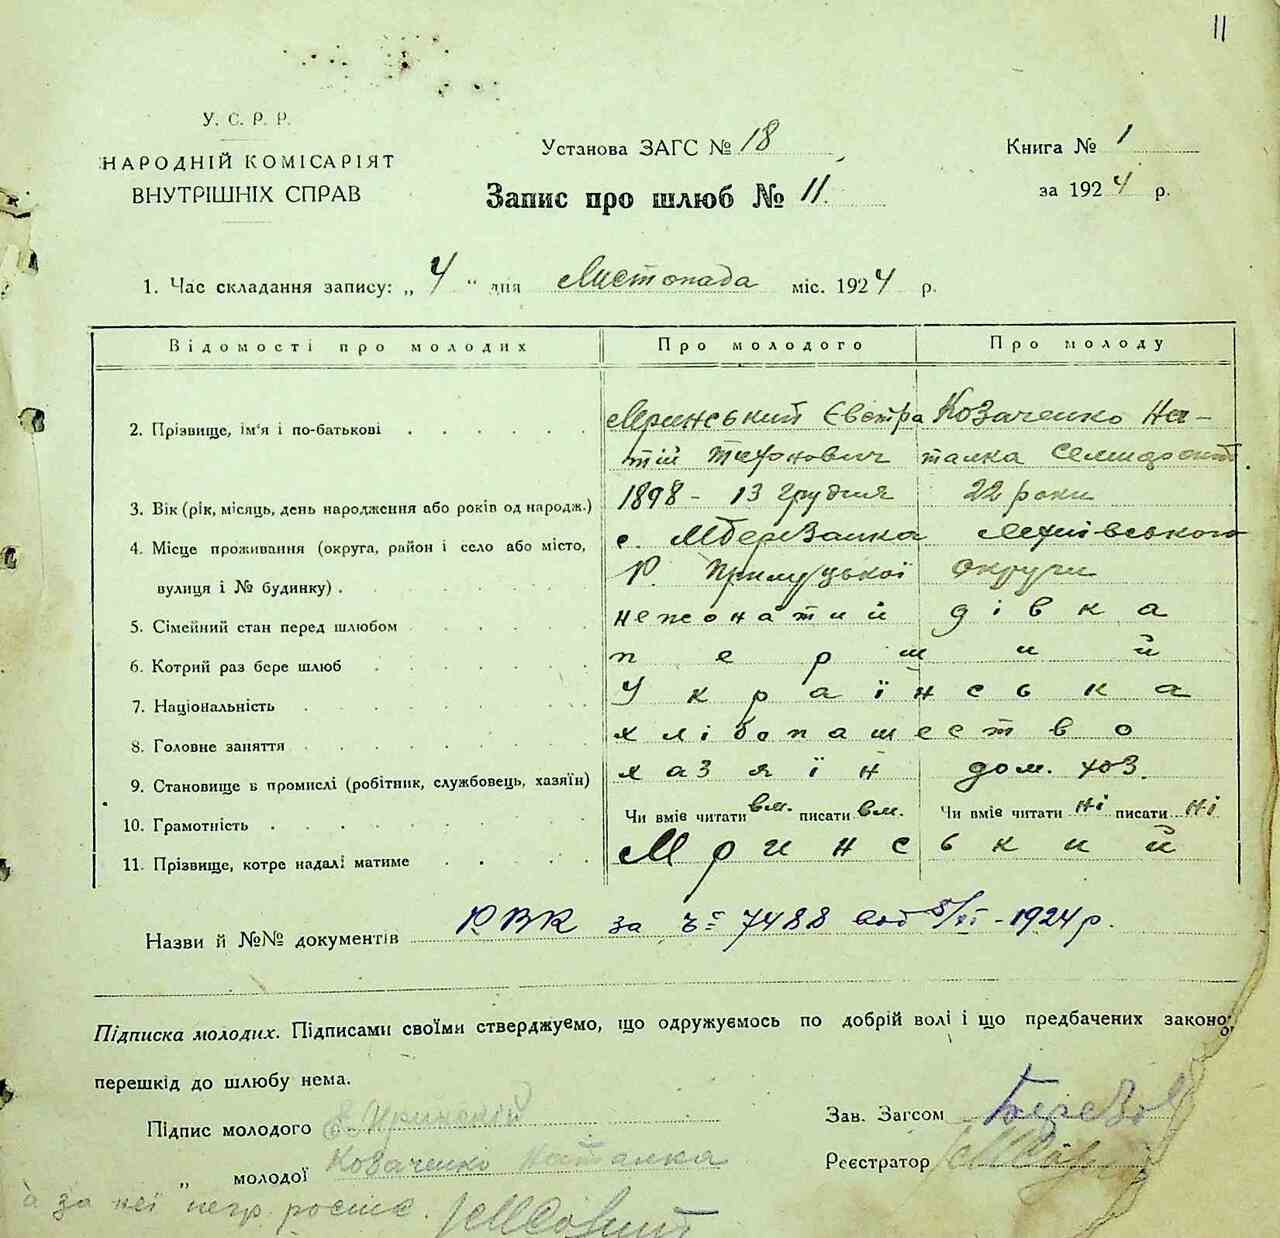 11
У. С. Р. Р.
НАРОДНІЙ КОМІСАРІЯТ
ВНУТРІШНІХ СПРАВ
Установа ЗАГС № 18
Запис про шлюб № 11.
Книга № 1
за 1924 р.
1. Час складання запису: „ 4 " дня Листопада міс. 1924 р.
Відомості про молодих Про молодого Про молоду
2. Прізвище, ім'я і по-батькові Мринський Євстра Козаченко На-
тій Тихонович талка
3. Вік (рік, місяць, день народження або років од народж.) 1898 - 13 грудня 22 роки
4. Місце проживання (округа, район і село або місто, с. МБерезанка
вулиця і № будинку) Р. Прилуцької Округи
5. Сімейний стан перед шлюбом нежонатий дівка
6. Котрий раз бере шлюб перший
7. Національність Українська
8. Головне заняття хлібопашество
9. Становище в промислі (робітник, службовець, хазяїн) хазяїн дом. хоз.
10. Грамотність Чи вміє читати вм. писати вм. Чи вміє читати ні писати ні
11. Прізвище, котре надалі матиме Мринський
Назви й №№ документів РВК за № 7488 від 5/XI - 1924 р.
Підписка молодих. Підписами своїми стверджуємо, що одружуємось по добрій волі і що предбачених законо
перешкід до шлюбу нема.
Підпис молодого Є. Мринский
Зав. Загсом
„ молодої Козаченко Наталка
Реєстратор
а за неї негр. роспис.